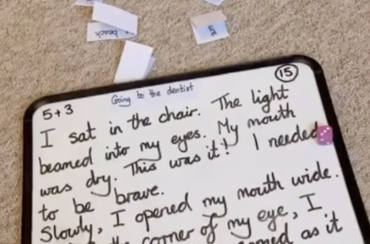 beach
5
5+3
Going to the dentist
15
I sat in the chair. The light
beamed into my eyes. My mouth
was dry. This was it! I needed
to be brave.
Slowly, I opened my mouth wide.
the corner of my eye, I
as it